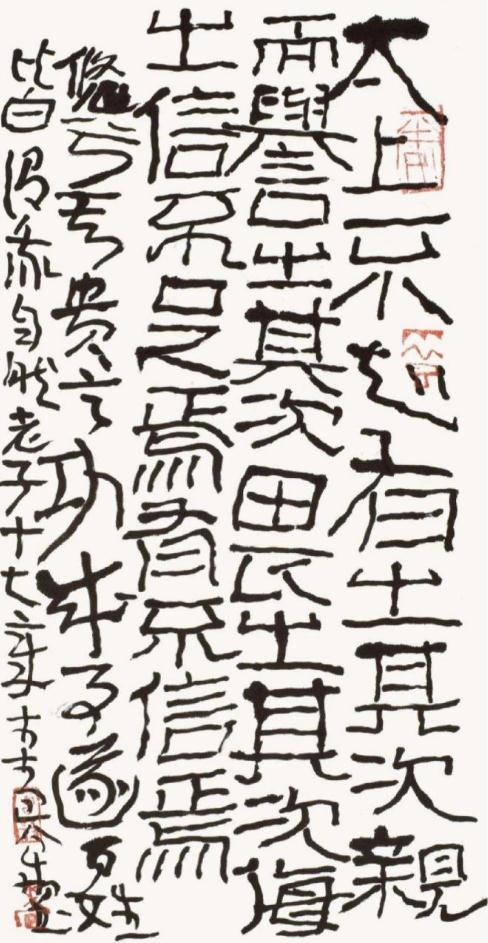 太上不知有之其次親
而譽之其次畏之其次侮
之信不足焉有不信焉
悠兮其貴言功成事遂百姓
皆謂我自然老子十七章